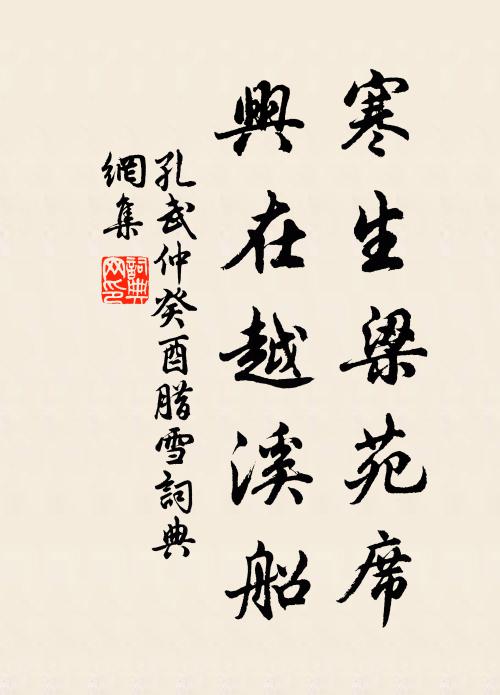 寒生梁苑席
興在越溪船
孔武仲癸酉腊雪詞典
網集
詞典
网印